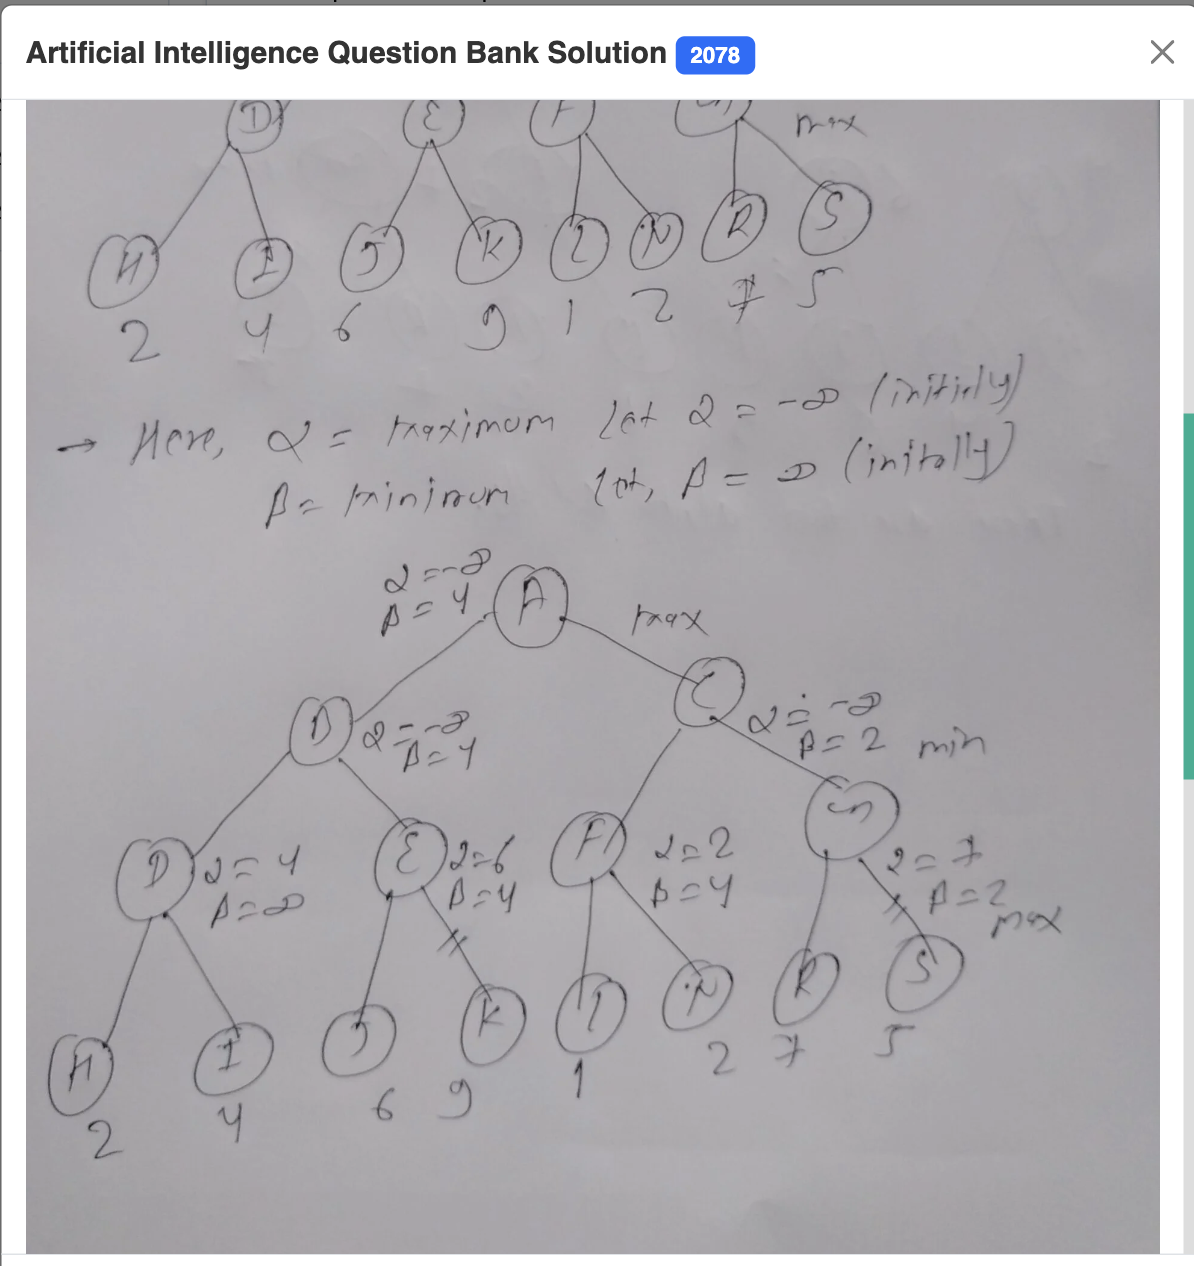 Artificial Intelligence Question Bank Solution 2078
D E F G max
H I J K L N R S
2 4 6 9 1 2 7 5
→ Here, α = maximum let α = -∞ (initially)
β = minimum let, β = ∞ (initally)
α = -∞
β = 4
A
max
B
α = -∞
β = 4
C
α = -∞
β = 2
min
D
α = 4
β = ∞
E
α = 6
β = 4
F
α = 2
β = 4
G
α = 7
β = 2
max
H I J K L N R S
2 4 6 9 1 2 7 5